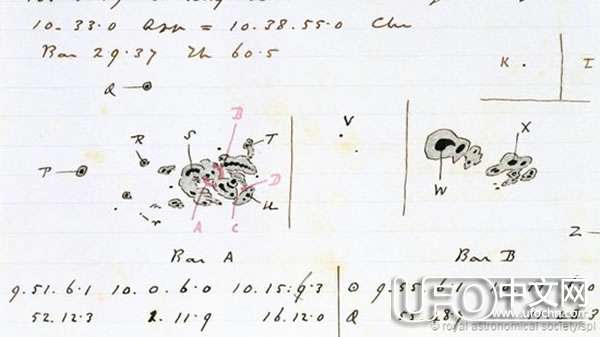 10. 33. 0 App = 10. 38. 55. 0 Chr
Bar 29. 37 Th 60. 5
K I
Q
B
V
X
R S T
P
D
W
A C U
Z
Bar A Bar B
9. 51. 6. 1 10. 0. 6. 0 10. 15. 9. 3 ⊙ 9. 55. 6. 1
52. 12. 3 2. 11. 9 16. 12. 0 Q
UFO中文网
www.ufochn.com
© royal astronomical society/spl